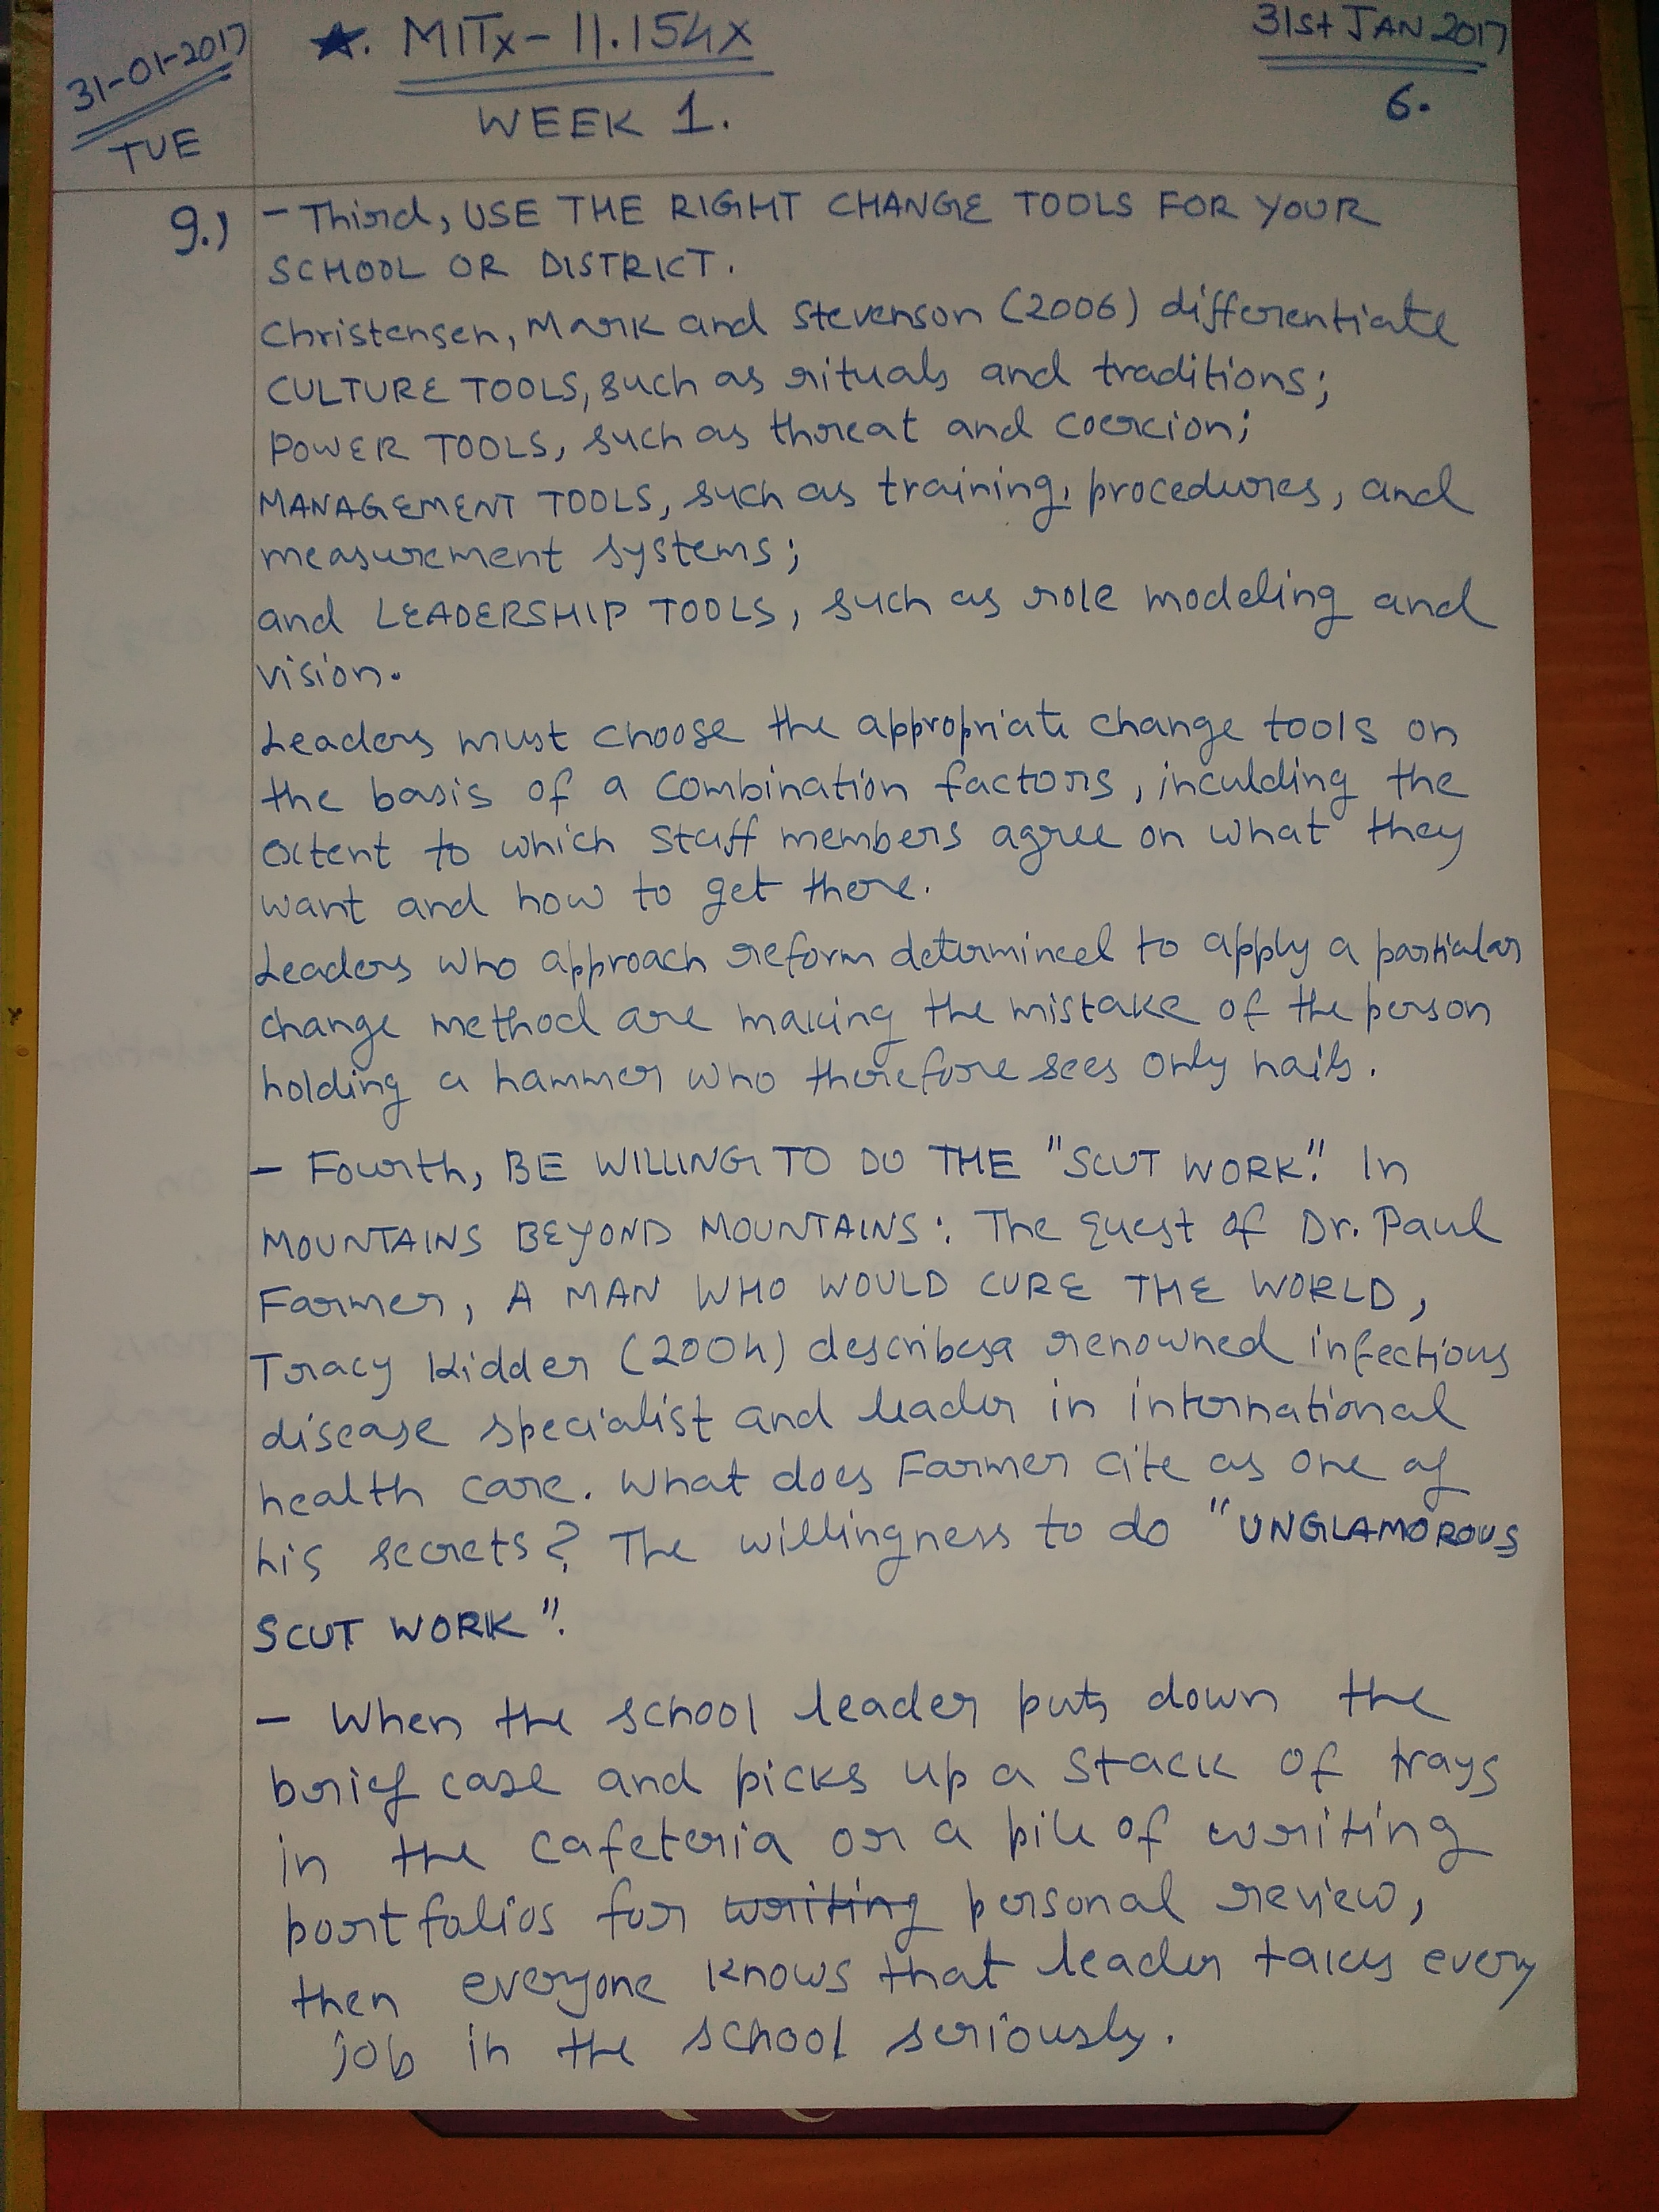 31-01-2017
TUE
★. MITx-11.154x
WEEK 1.
31st JAN 2017
6.
9.) - Third, USE THE RIGHT CHANGE TOOLS FOR YOUR
SCHOOL OR DISTRICT.
Christensen, Mark and Stevenson (2006) differentiate
CULTURE TOOLS, such as rituals and traditions;
POWER TOOLS, such as threat and coercion;
MANAGEMENT TOOLS, such as training, procedures, and
measurement systems;
and LEADERSHIP TOOLS, such as role modeling and
vision.
Leaders must choose the appropriate change tools on
the basis of a combination factors, inculding the
extent to which staff members agree on what they
want and how to get there.
Leaders who approach reform determined to apply a particular
change method are making the mistake of the person
holding a hammer who therefore sees only nails.
- Fourth, BE WILLING TO DO THE "SCUT WORK." In
MOUNTAINS BEYOND MOUNTAINS: The Quest of Dr. Paul
Farmer, A MAN WHO WOULD CURE THE WORLD,
Tracy Kidder (2004) describes a renowned infectious
disease specialist and leader in international
health care. What does Farmer cite as one of
his secrets? The willingness to do "UNGLAMOROUS
SCUT WORK".
- When the school leader puts down the
brief case and picks up a stack of trays
in the cafeteria or a pile of writing
portfolios for writing personal review,
then everyone knows that leader takes every
job in the school seriously.